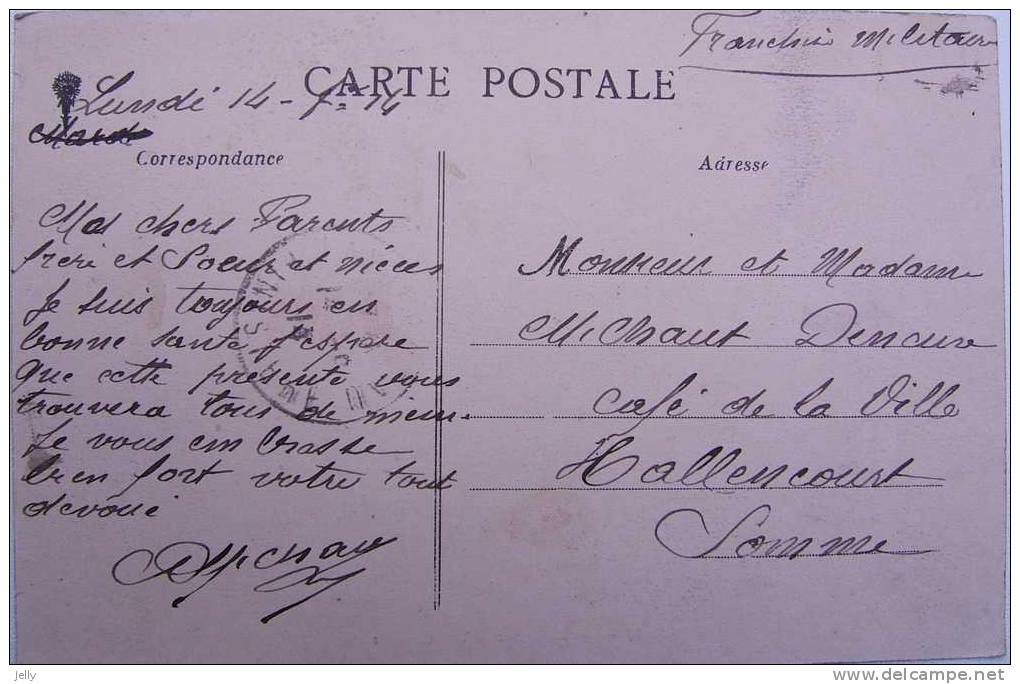 Franchise Militaire
CARTE POSTALE
Lundi 14 - 14
Mardi
Correspondance
Adresse
Mes chers Parents
frere et Soeur et nièces
Je suis toujours en
bonne santé j'espère
que cette présente vous
trouvera tous de même
Je vous embrasse
bien fort votre tout
devoué
Monsieur et Madame
Michaut
Café de la Ville
Hallencourt
Somme
jelly
www.delcampe.net